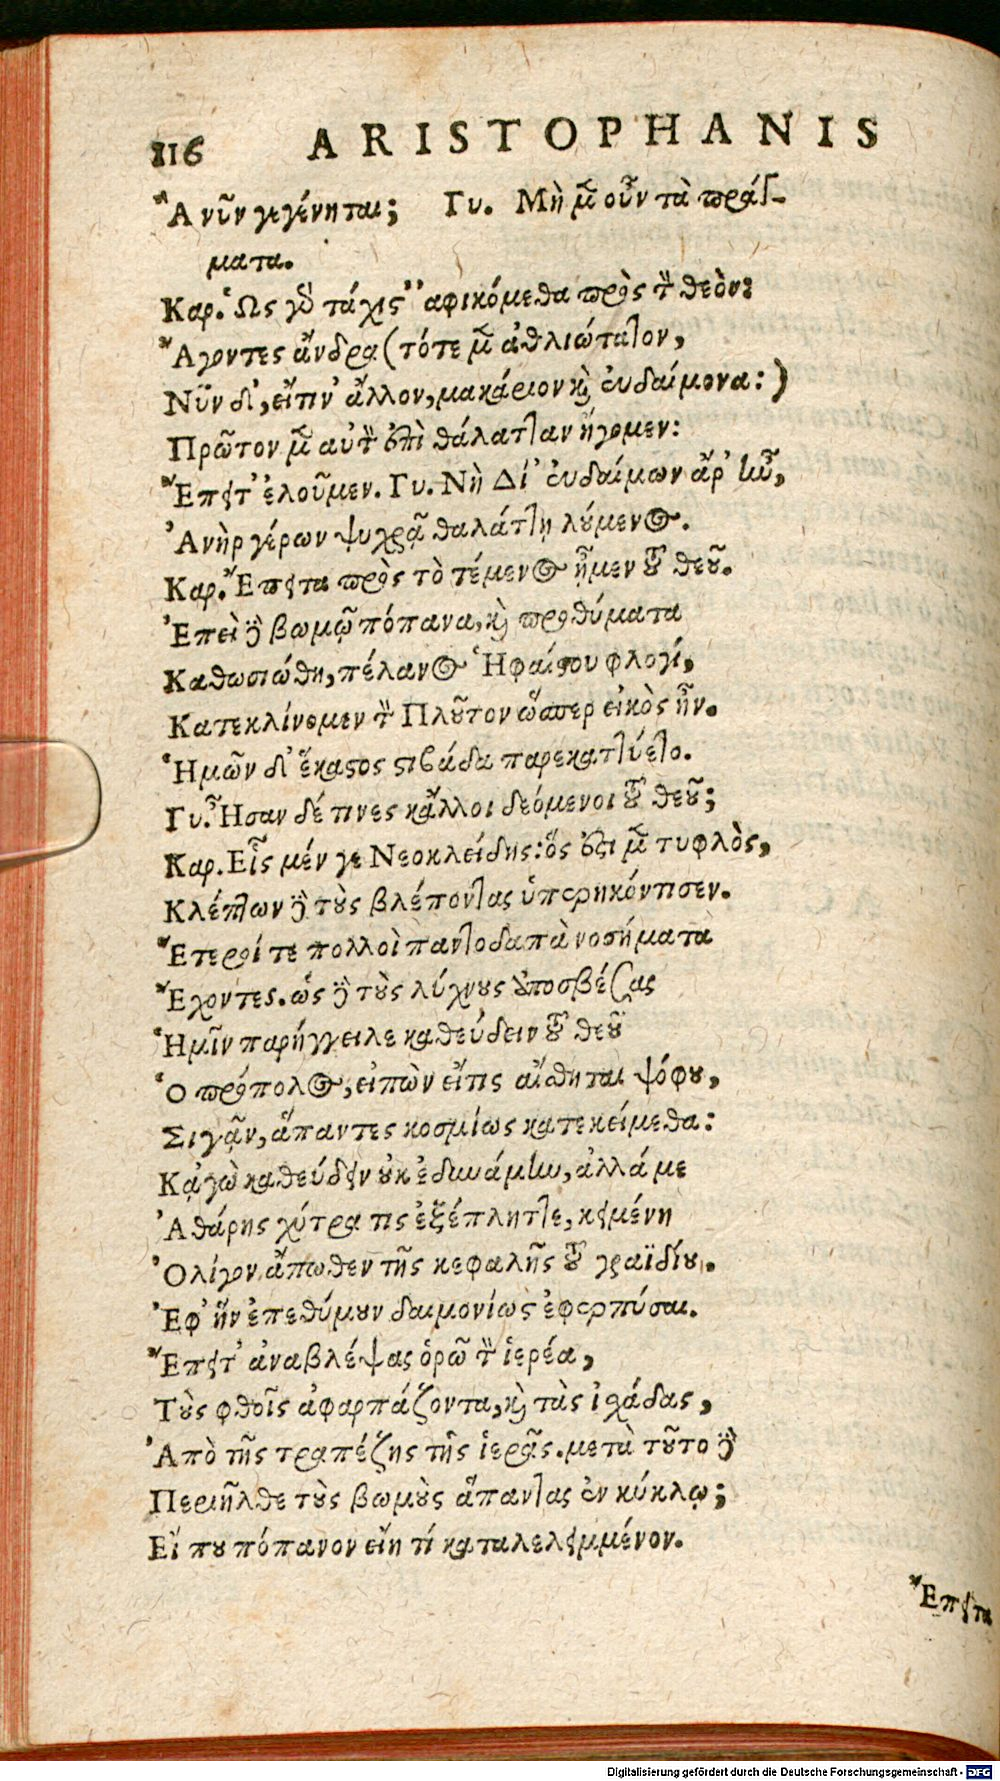 116 ARISTOPHANIS
Ἃ νῦν γεγένηται; Γυ. Μὴ μὲν οὖν τὰ πράγ-
ματα.
Καρ. Ὡς γὸ τάχιστ' ἀφικόμεθα πρὸς τὸν θεὸν:
Ἄγοντες ἄνδρα (τότε μὲν ἀθλιώτατον,
Νῦν δ', εἴτιν' ἄλλον, μακάριον καὶ εὐδαίμονα:)
Πρῶτον μὲν αὐτὸν ἐπὶ θάλατταν ἤγομεν:
Ἔπειτ' ἐλοῦμεν. Γυ. Νὴ Δί' εὐδαίμων ἄρ' ἦν,
Ἀνὴρ γέρων ψυχρᾷ θαλάττῃ λύμενος.
Καρ. Ἔπειτα πρὸς τὸ τέμενος ᾖμεν τοῦ θεοῦ.
Ἐπεὶ δὲ βωμῷ πόπανα, καὶ προθύματα
Καθωσιώθη, πέλανος Ἡφαίστου φλογί,
Κατεκλίνομεν τὸν Πλοῦτον ὥσπερ εἰκὸς ἦν.
Ἡμῶν δ' ἕκαστος στιβάδα παρεκαττύετο.
Γυ. Ἦσαν δέ τινες κἄλλοι δεόμενοι τοῦ θεοῦ;
Καρ. Εἷς μέν γε Νεοκλείδης: ὅς ἐστι μὲν τυφλὸς,
Κλέπτων δὲ τοὺς βλέποντας ὑπερηκόντισεν.
Ἕτεροί τε πολλοὶ παντοδαπὰ νοσήματα
Ἔχοντες. ὡς δὲ τοὺς λύχνους ἀποσβέσας
Ἡμῖν παρήγγειλε καθεύδειν τοῦ θεοῦ
Ὁ πρόπολος, εἰπὼν εἴτις αἴσθηται ψόφου,
Σιγᾷν, ἅπαντες κοσμίως κατεκείμεθα:
Κᾀγὼ καθεύδειν οὐκ ἐδυνάμην, ἀλλά με
Ἀθάρης χύτρα τις ἐξέπληττε, κειμένη
Ὀλίγον ἄπωθεν τῆς κεφαλῆς τοῦ γραϊδίου.
Ἐφ' ἣν ἐπεθύμουν δαιμονίως ἐφερπύσαι.
Ἔπειτ' ἀναβλέψας ὁρῶ τὸν ἱερέα,
Τοὺς φθοῖς ἀφαρπάζοντα, καὶ τὰς ἰχάδας,
Ἀπὸ τῆς τραπέζης τῆς ἱερᾶς. μετὰ τοῦτο δὲ
Περιῆλθε τοὺς βωμοὺς ἅπαντας ἐν κύκλῳ;
Εἴ που πόπανον εἴη τί καταλελειμμένον.
Ἔπειτα
Digitalisierung gefördert durch die Deutsche Forschungsgemeinschaft - DFG